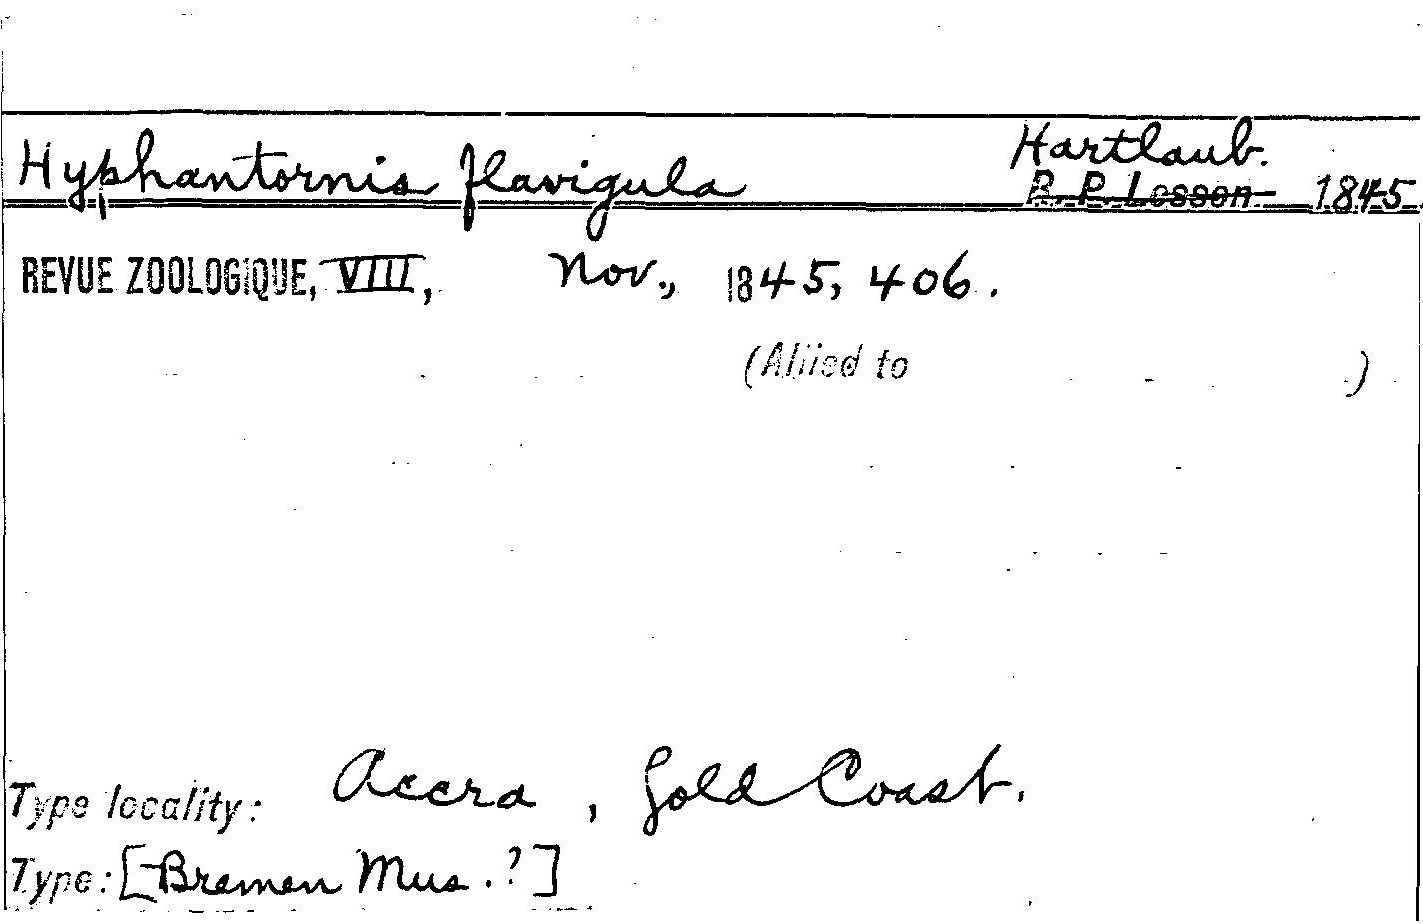 Hyphantornis flavigula Hartlaub.
R. P. Lesson 1845
REVUE ZOOLOGIQUE, VIII, Nov., 1845, 406.
(Allied to )
Type locality: Accra, Gold Coast.
Type: [Bremen Mus.?]